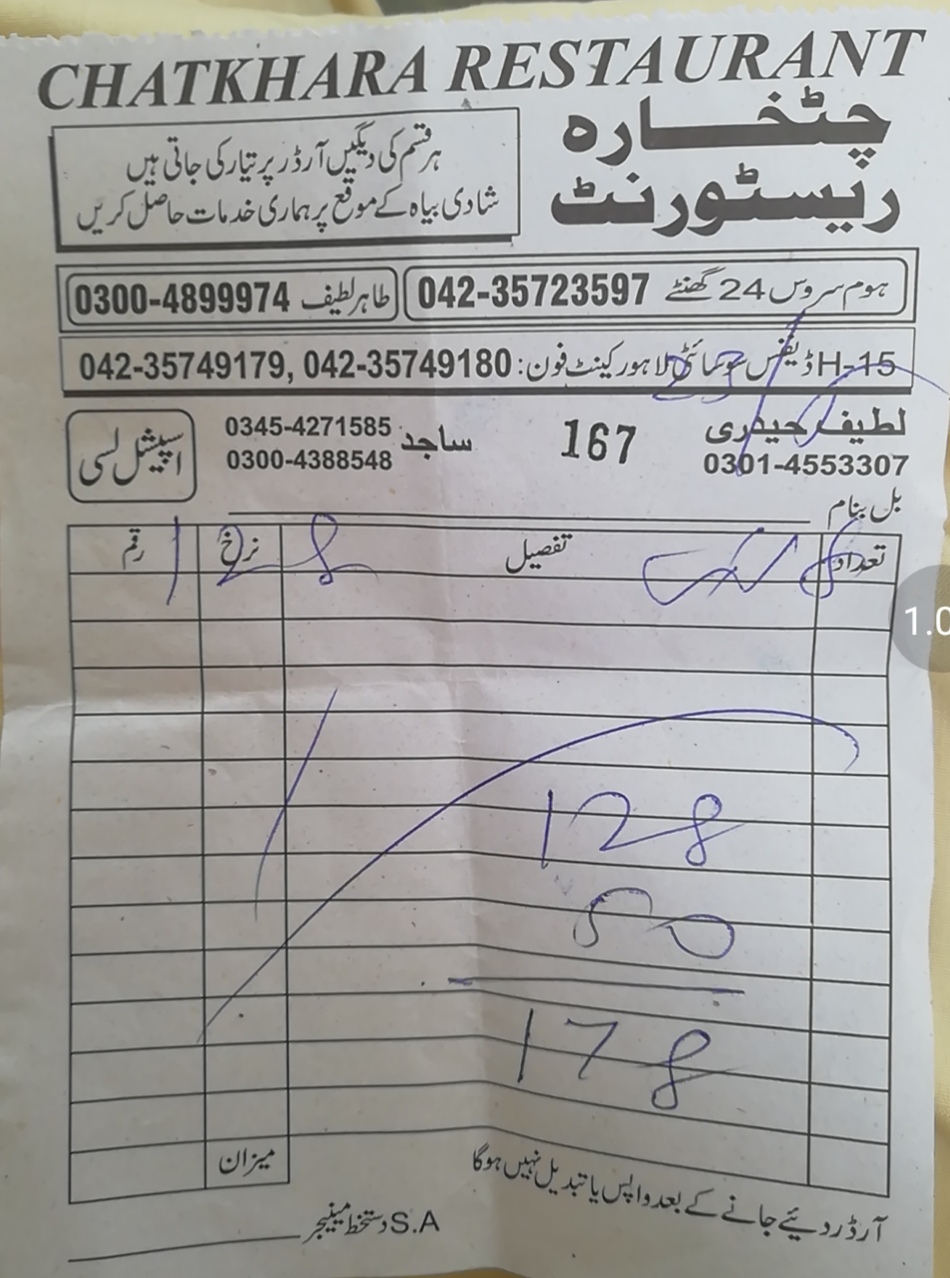 CHATKHARA RESTAURANT
چٹخارہ
ریسٹورنٹ
ہر قسم کی دیگیں آرڈر پر تیار کی جاتی ہیں
شادی بیاہ کے موقع پر ہماری خدمات حاصل کریں
ہوم سروس 24 گھنٹے 042-35723597
طاہر لطیف 0300-4899974
H-15 ڈیفنس سوسائٹی لاہور کینٹ فون: 042-35749179, 042-35749180
لطیف حیدری 167 ساجد 0345-4271585
0301-4553307 0300-4388548
اسپیشل لسی
بل بنام
تعداد تفصیل نرخ رقم
8 128
128
50
178
میزان
آرڈر دیئے جانے کے بعد واپس یا تبدیل نہیں ہوگا
S.A دستخط مینیجر
1.0